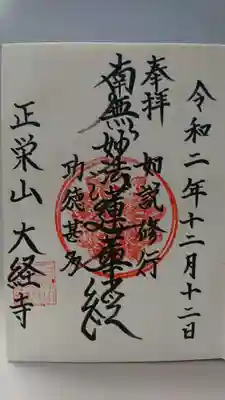 令和二年十二月十二日
奉拝 如説修行
南無妙法蓮華経
功徳甚多
正栄山 大経寺